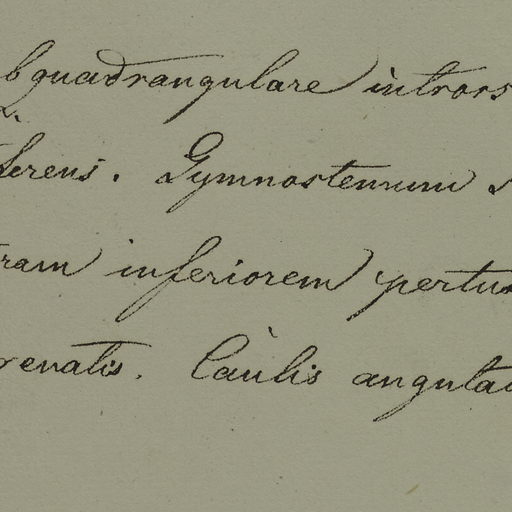 bquadrangulare intrors
ferens. Gymnostemium s
tram inferiorem pertus
renatis. Caulis angulat